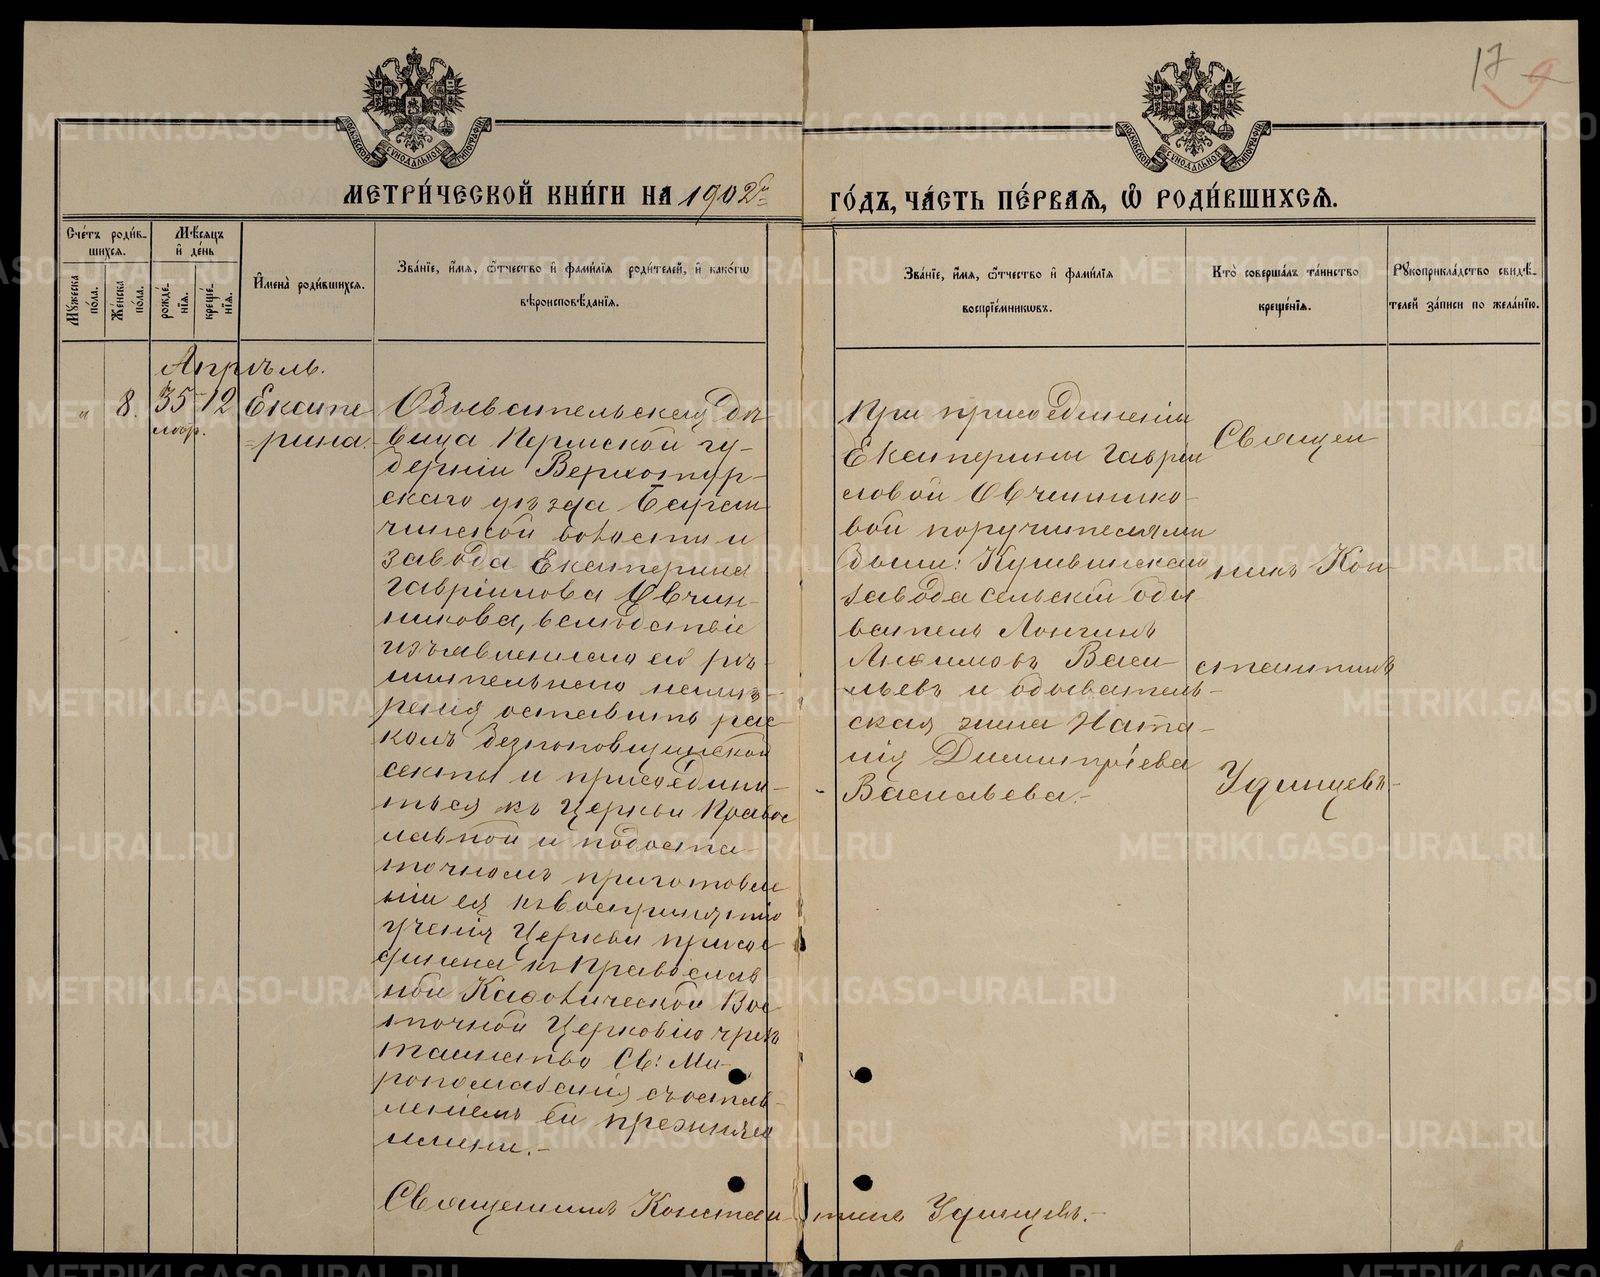 17
МОСКОВСКОЙ СѴНОДАЛЬНОЙ ТИПОГРАФІИ
МОСКОВСКОЙ СѴНОДАЛЬНОЙ ТИПОГРАФІИ
МЕТРИ́ЧЕСКОЙ КНИ́ГИ НА 1902й ГО́ДЪ, ЧА́СТЬ ПЕ́РВАЯ, Ѽ РОДИ́ВШИХСЯ.
Сче́тъ роди́в-
шихся.
Мѣ́сяцъ
и де́нь
Мꙋжеска по́ла.
Же́нска по́ла.
рожде́нїя.
креще́нїя.
Имена̀ роди́вшихся.
Зва́нїе, и́мя, ѻ҆́тчество и҆ фами́лїя роди́телей, и҆ како́гѡ
вѣроисповѣ́данїя.
Зва́нїе, и́мя, ѻ҆́тчество и҆ фами́лїя
воспрїе́мникѡвъ.
Кто̀ соверша́лъ та́инство
креще́нїя.
Рꙋкоприкла́дство свидѣ́-
телей за́писи по жела́нїю.
Апрѣль.
" 8. 35 12 Екате
лѣтъ.
рина.
Обывательская дѣ-
вица Пермской гу-
берніи Верхотур-
скаго уѣзда Баран
чинской волости и
завода Екатерина
Гавріилова Овчин-
никова, вслѣдствіе
изъявленнаго ею рѣ-
шительнаго намѣ-
ренія оставить рас
колъ безпоповщинской
секты и присоедини-
ться къ Церкви Правос
лавной и по доста-
точномъ приготовле
ніи ея къ воспринятію
ученія Церкви присое
динена къ Православ
ной Каѳолической Вос
точной Церковію чрезъ
таинство Св: Ми-
ропомазанія съ остав-
леніемъ ей прежняго
имени.-
При присоединеніи
Екатерины Гаврі
иловой Овчиннико-
вой поручителями
были: Кушвинскаго
завода сельскій обы
ватель Лонгинъ
Васи
льевъ и обыватель-
ская жена Ната-
лія Димитріева
Васильева.-
Священ
никъ Кон-
стантинъ
Удинцевъ-
Священникъ Константинъ Удинцевъ.-
METRIKI.GASO-URAL.RU